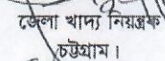 জেলা খাদ্য নিয়ন্ত্রক
চট্টগ্রাম।